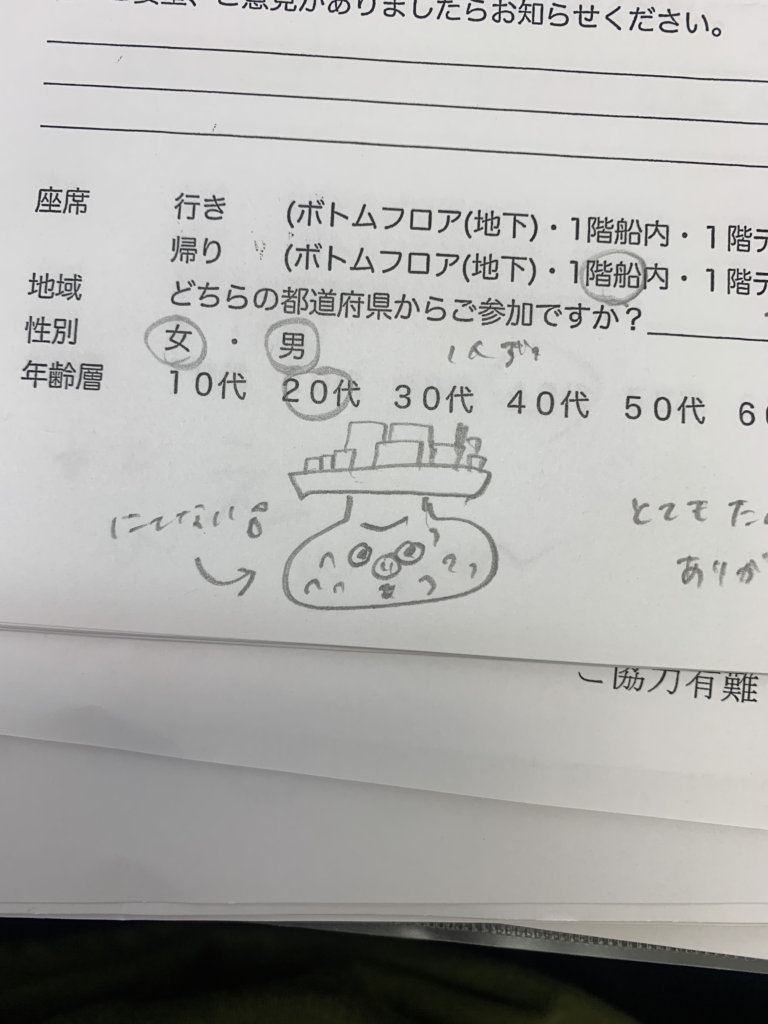 ご意見がありましたらお知らせください。
座席 行き (ボトムフロア(地下)・1階船内・1階デ
帰り (ボトムフロア(地下)・1階船内・1階デ
地域 どちらの都道府県からご参加ですか?
性別 女 ・ 男 1人ずつ
年齢層 10代 20代 30代 40代 50代 6
にてない
とても た
ありが
ご協力有難